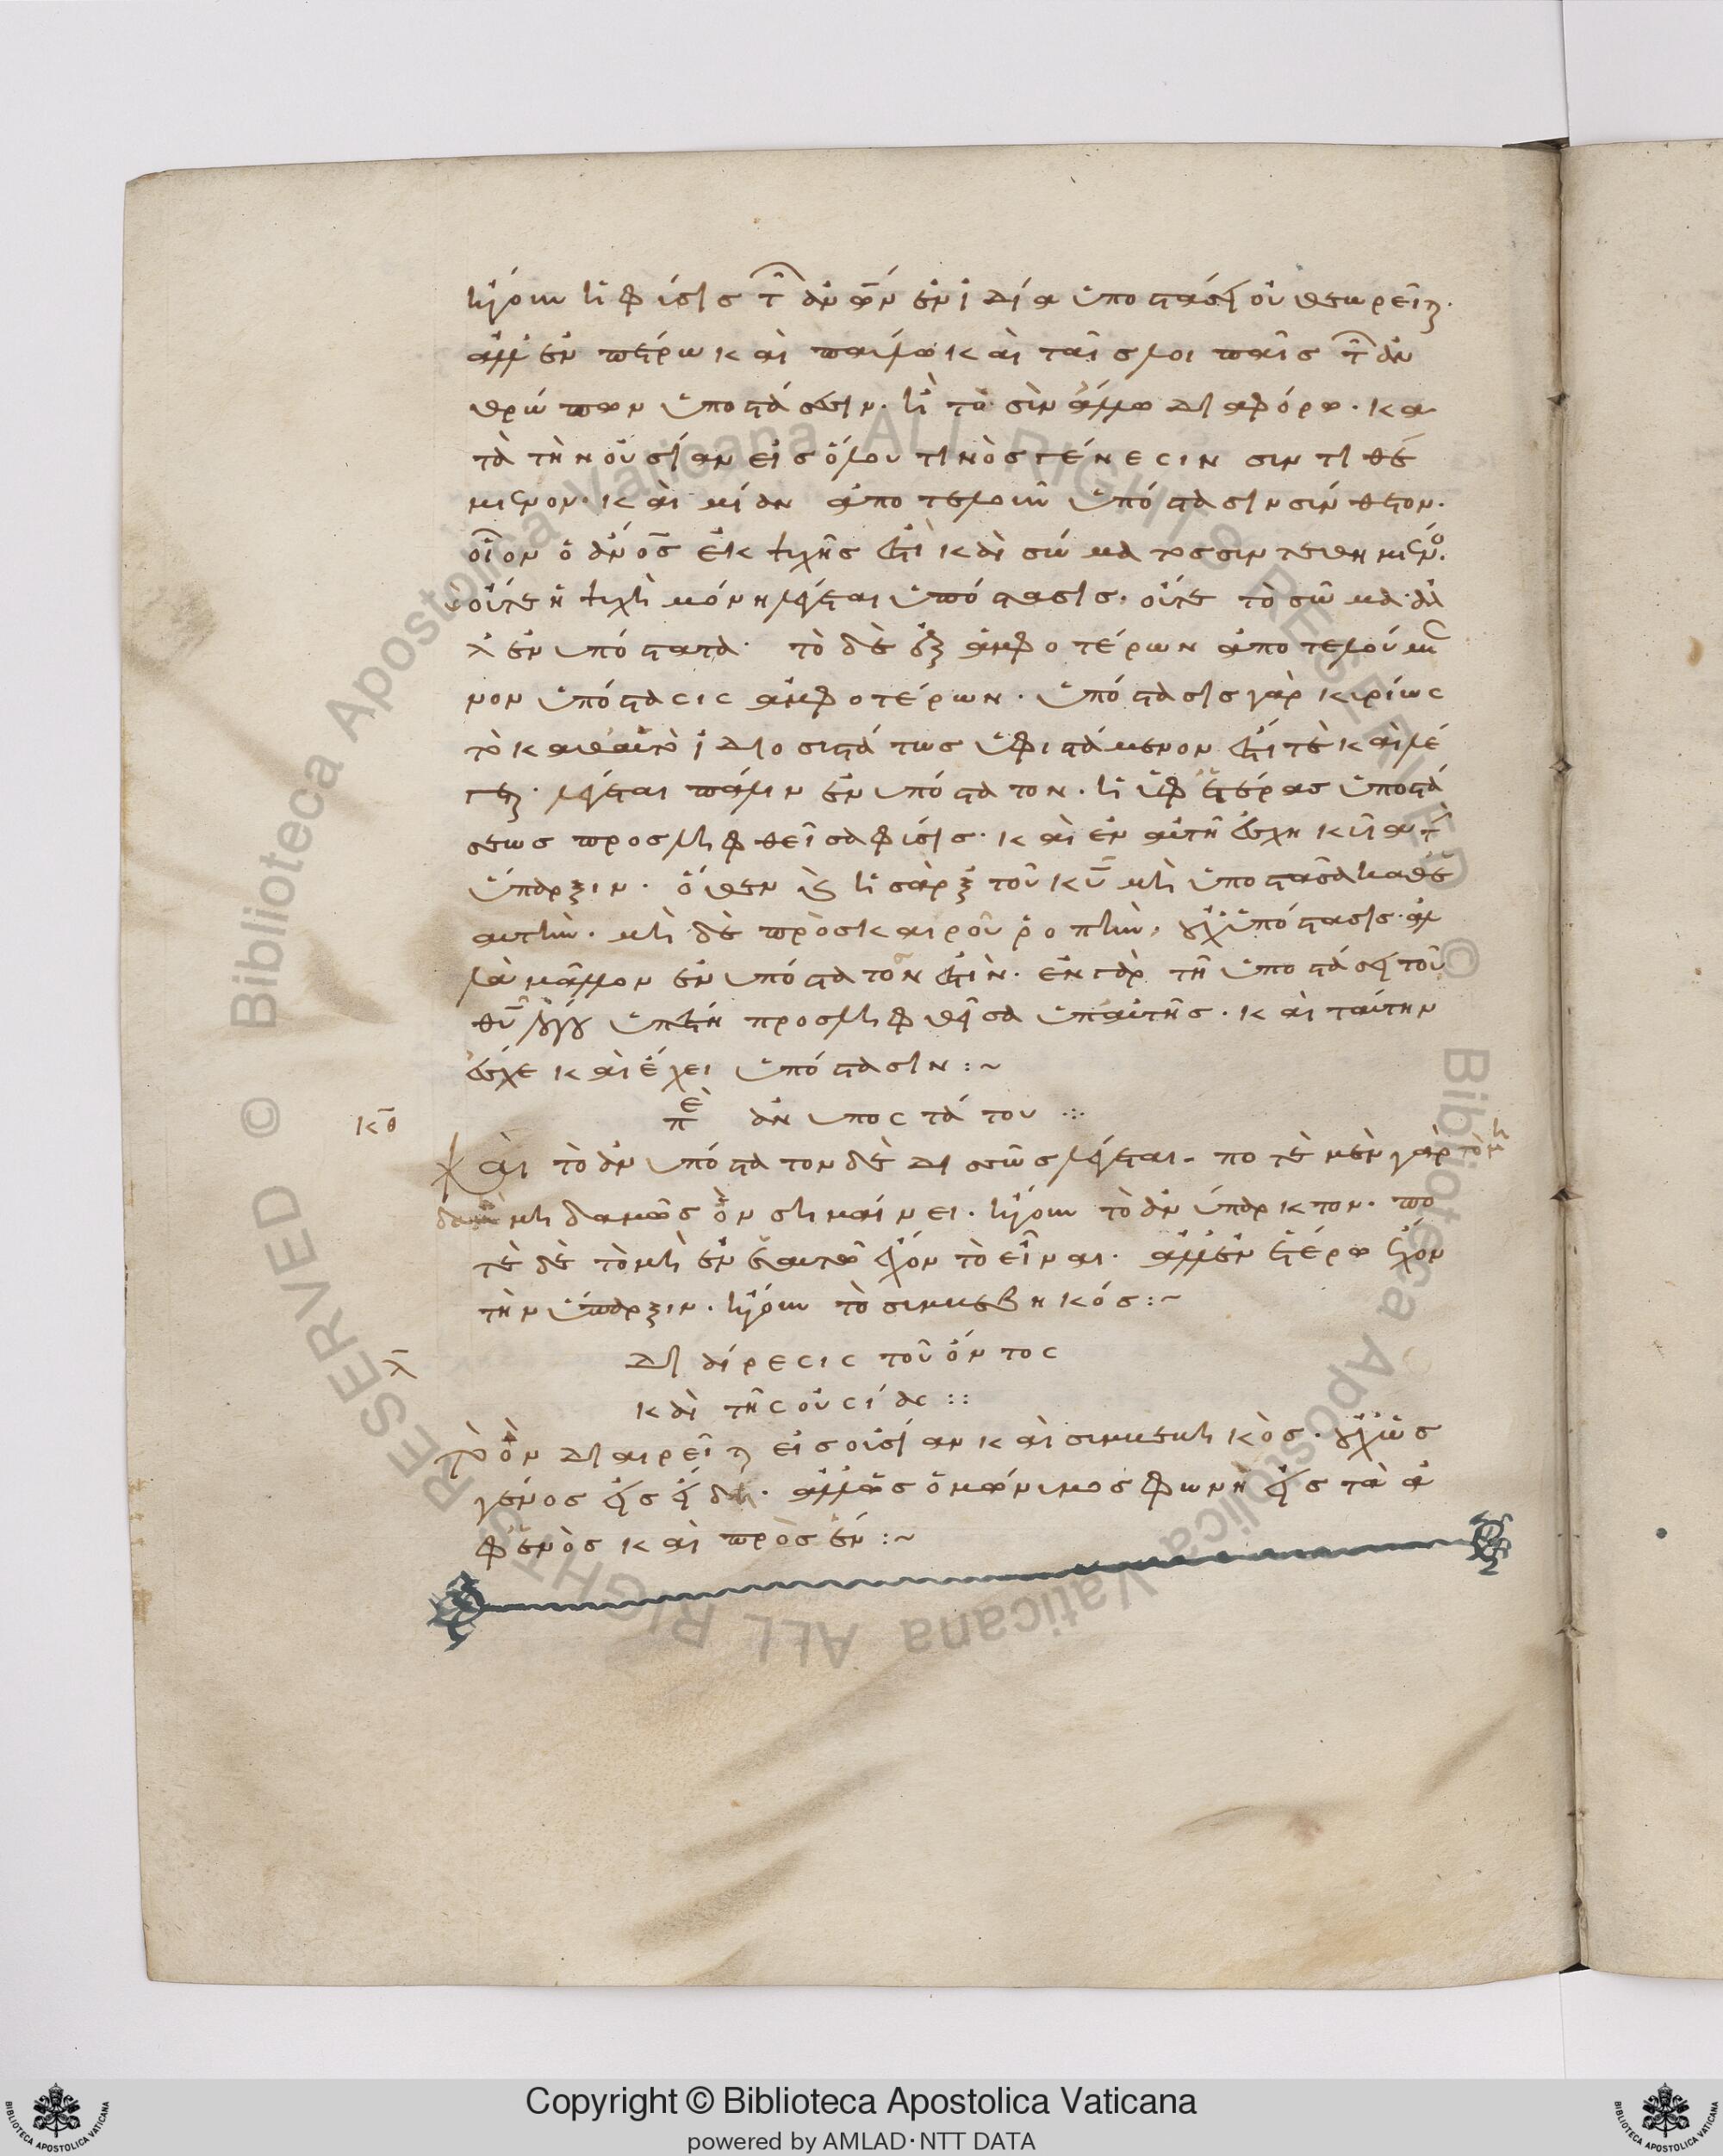 ἤγουν ἡ φύσις τῶν ἀνῶν ἐν ἰδία ὑποστάσει οὐ θεωρεῖται·
ἀλλ' ἐν πέτρω καὶ παύλω καὶ ταῖς λοιπαῖς τῶν ἀν
θρώπων ὑποστάσεσιν. ἢ τὸ σὺν ἄλλω διαφόρω· κα
τὰ τὴν οὐσίαν εἰς ὅλου τινὸς γένεσιν σιντιθέ
μενον· καὶ μίαν ἀποτελοῦν ὑπόστασιν σύνθετον·
οἷον ὁ ἄνος ἐκ ψυχῆς ἐστὶ καὶ σώματος σιντεθημένος·
οὔτε ἡ ψυχὴ μόνη λέγεται ὑπόστασις· οὔτε τὸ σῶμα· ἀλ
λ' ἐνυπόστατα· τὸ δὲ ἐξ ἀμφοτέρων ἀποτελούμε
νον ὑπόστασις ἀμφοτέρων· ὑπόστασις γὰρ κυρίως
τὸ καθ' αὑτὸ ἰδιοσυστάτως ὑφιστάμενον ἐστί τὲ καὶ λέ
γεται· λέγεται πάλιν ἐνυπόστατον· ἡ ὑφ' ἑτέρας ὑποστά
σεως προσληφθεῖσα φύσις· καὶ ἐν αὐτῆ ἐσχηκυῖα τὴν
ὕπαρξιν· ὅθεν καὶ ἡ σὰρξ τοῦ κυ μὴ ὑποστᾶσα καθ' ἑ
αυτὴν· μὴ δὲ πρὸς καιροῦ ῥοπὴν, οὐχ' ὑπόστασις· ἀλ
λὰ μᾶλλον ἐνυπόστατον ἐστὶν· ἐν γὰρ τῆ ὑποστάσει τοῦ
θυ λόγου ὑπέστη προσληφθεῖσα ὑπ' αὐτῆς· καὶ ταύτην
ἔσχε καὶ ἔχει ὑπόστασιν :~
κθ
περὶ ἀνυποστάτου ·:·
Καὶ τὸ ἀνυπόστατον δὲ δισσῶς λέγεται· ποτὲ μὲν γὰρ τὸ μη
δαμῆ μηδαμῶς ὂν σημαίνει· ἤγουν τὸ ἀνύπαρκτον· πο
τὲ δὲ τὸ μὴ ἐν ἑαυτῶ ἔχον τὸ εἶναι· ἀλλ' ἐν ἑτέρω ἔχον
τὴν ὕπαρξιν· ἤγουν τὸ σιμβεβηκός :~
λ
Διαίρεσις τοῦ ὄντος
καὶ τῆς οὐσίας ::
Τὸ ὂν διαιρεῖται εἰς οὐσίαν καὶ σιμβεβηκὸς· οὐχ' ὡς
γένος εἰς εἴδη· ἀλλ' ὡς ὁμώνιμος φωνὴ εἰς τὰ ἀ
φ' ἑνὸς καὶ πρὸς ἕν :~
Copyright © Biblioteca Apostolica Vaticana
powered by AMLAD·NTT DATA